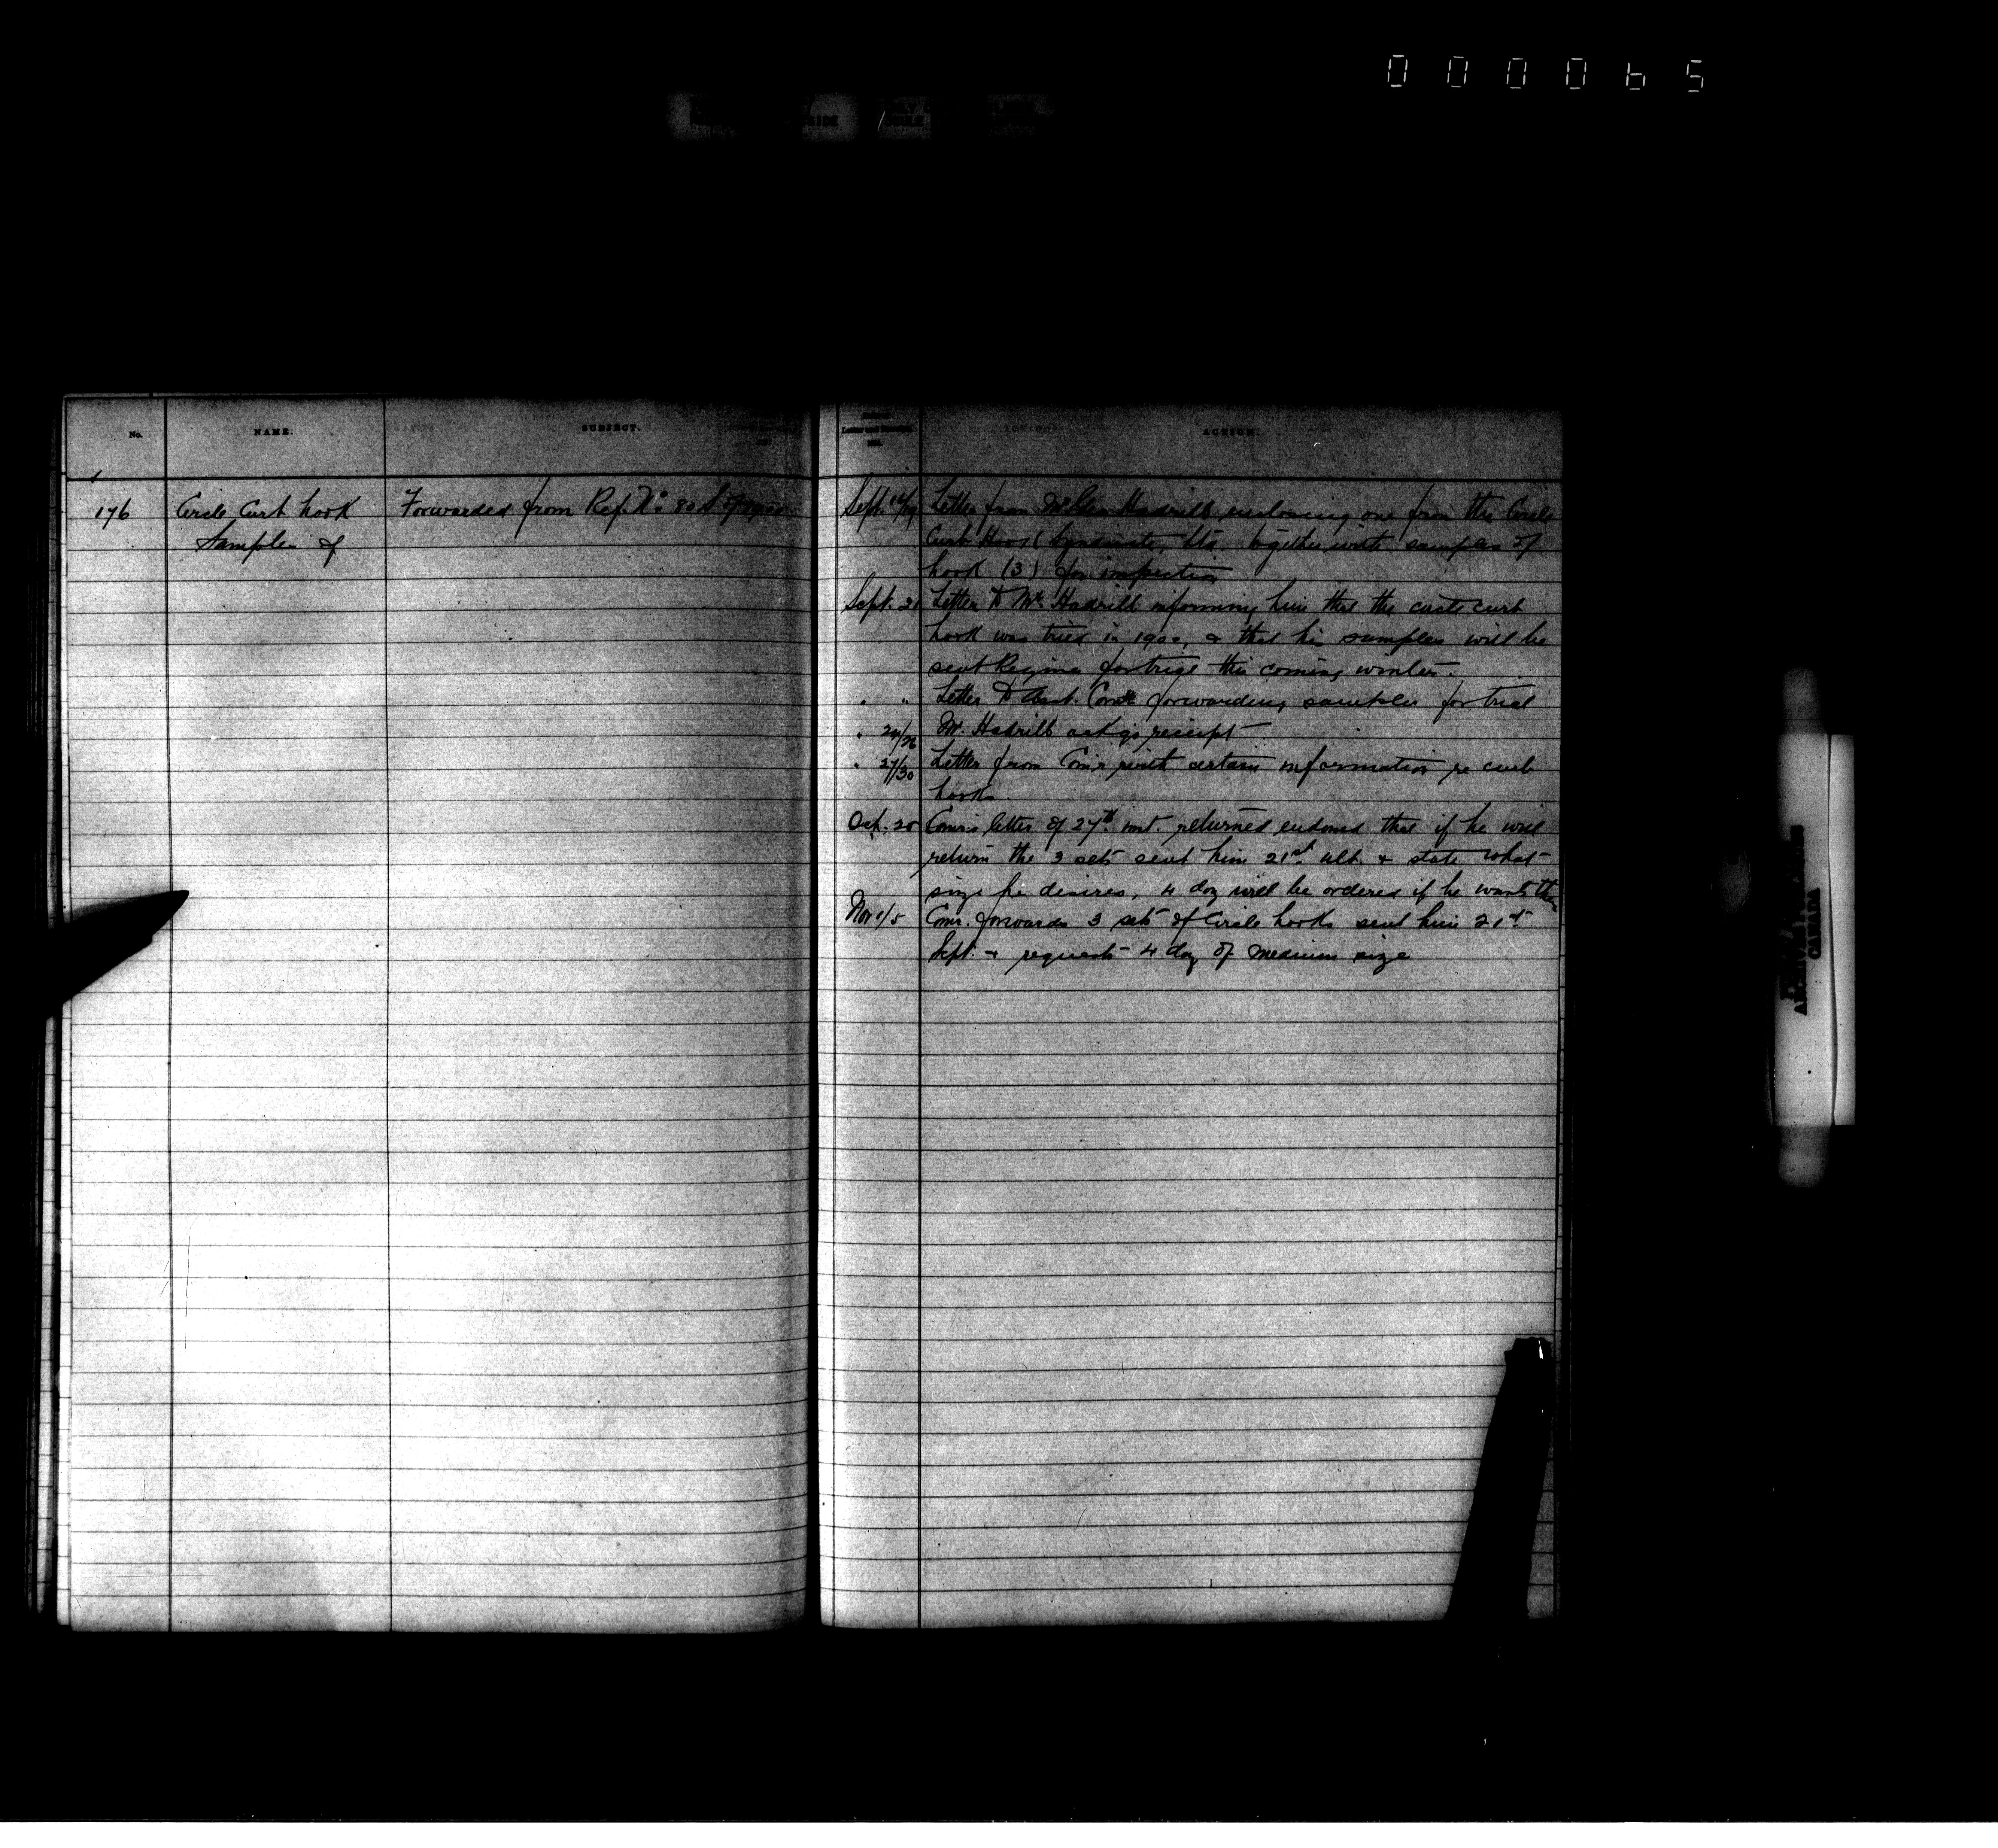 0 0 0 0 6 5
No.
NAME.
SUBJECT.
ACTION.
176
Circle Curb hook
Samples of
Forwarded from Ref. No 80 of 1900
Sept. 14/19 Letter from Mr Geo Hadrill enclosing one from the Circle
Curb Hook Syndicate, Ltd. together with samples of
hook (3) for inspection
Sept. 21 Letter to Mr. Hadrill informing him that the circle curb
hook was tried in 1900, & that his samples will be
sent Regina for trial this coming winter.
" " Letter to Asst. Comr forwarding samples for trial
" 24/26 Mr. Hadrill ackgs receipt
" 27/30 Letter from Comr with certain information re curb
hooks
Oct. 20 Comr's letter of 27th inst. returned endorsed that if he will
return the 3 sets sent him 21st ult. & state what
size he desires, 4 doz will be ordered if he wants them
Nov 1/5 Comr. forwards 3 sets of Circle hooks sent him 21st
Sept. & requests 4 doz of medium size
CANADA